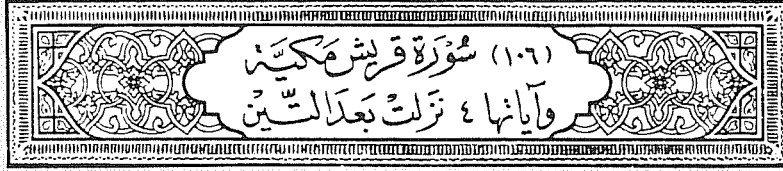 (١٠٦) سُوۡرَةُ قُرَيۡشٍ مَكِّيَّةٌ
وَآيَاتُهَا ٤ نَزَلَتۡ بَعۡدَ التِّيۡنِ